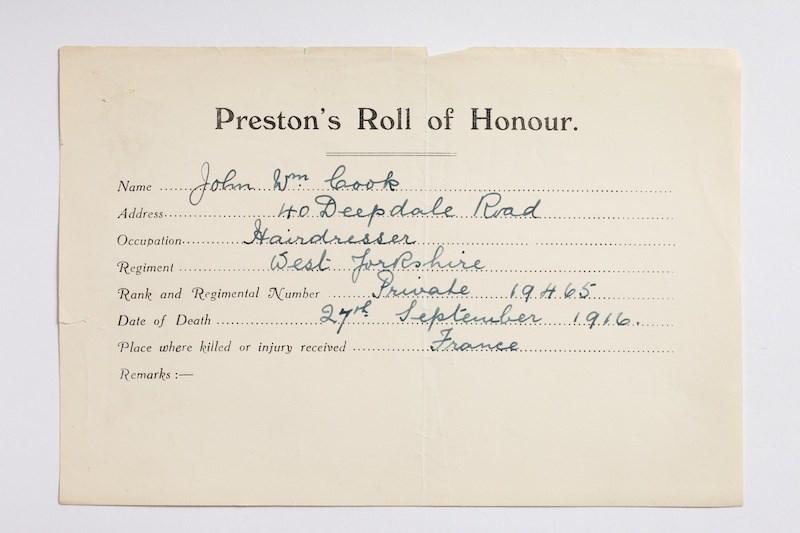 Preston's Roll of Honour.
Name ..... John Wm. Cook
Address ..... 40 Deepdale Road
Occupation ..... Hairdresser
Regiment ..... West Yorkshire
Rank and Regimental Number ..... Private 19465
Date of Death ..... 27th September 1916.
Place where killed or injury received ..... France
Remarks :—